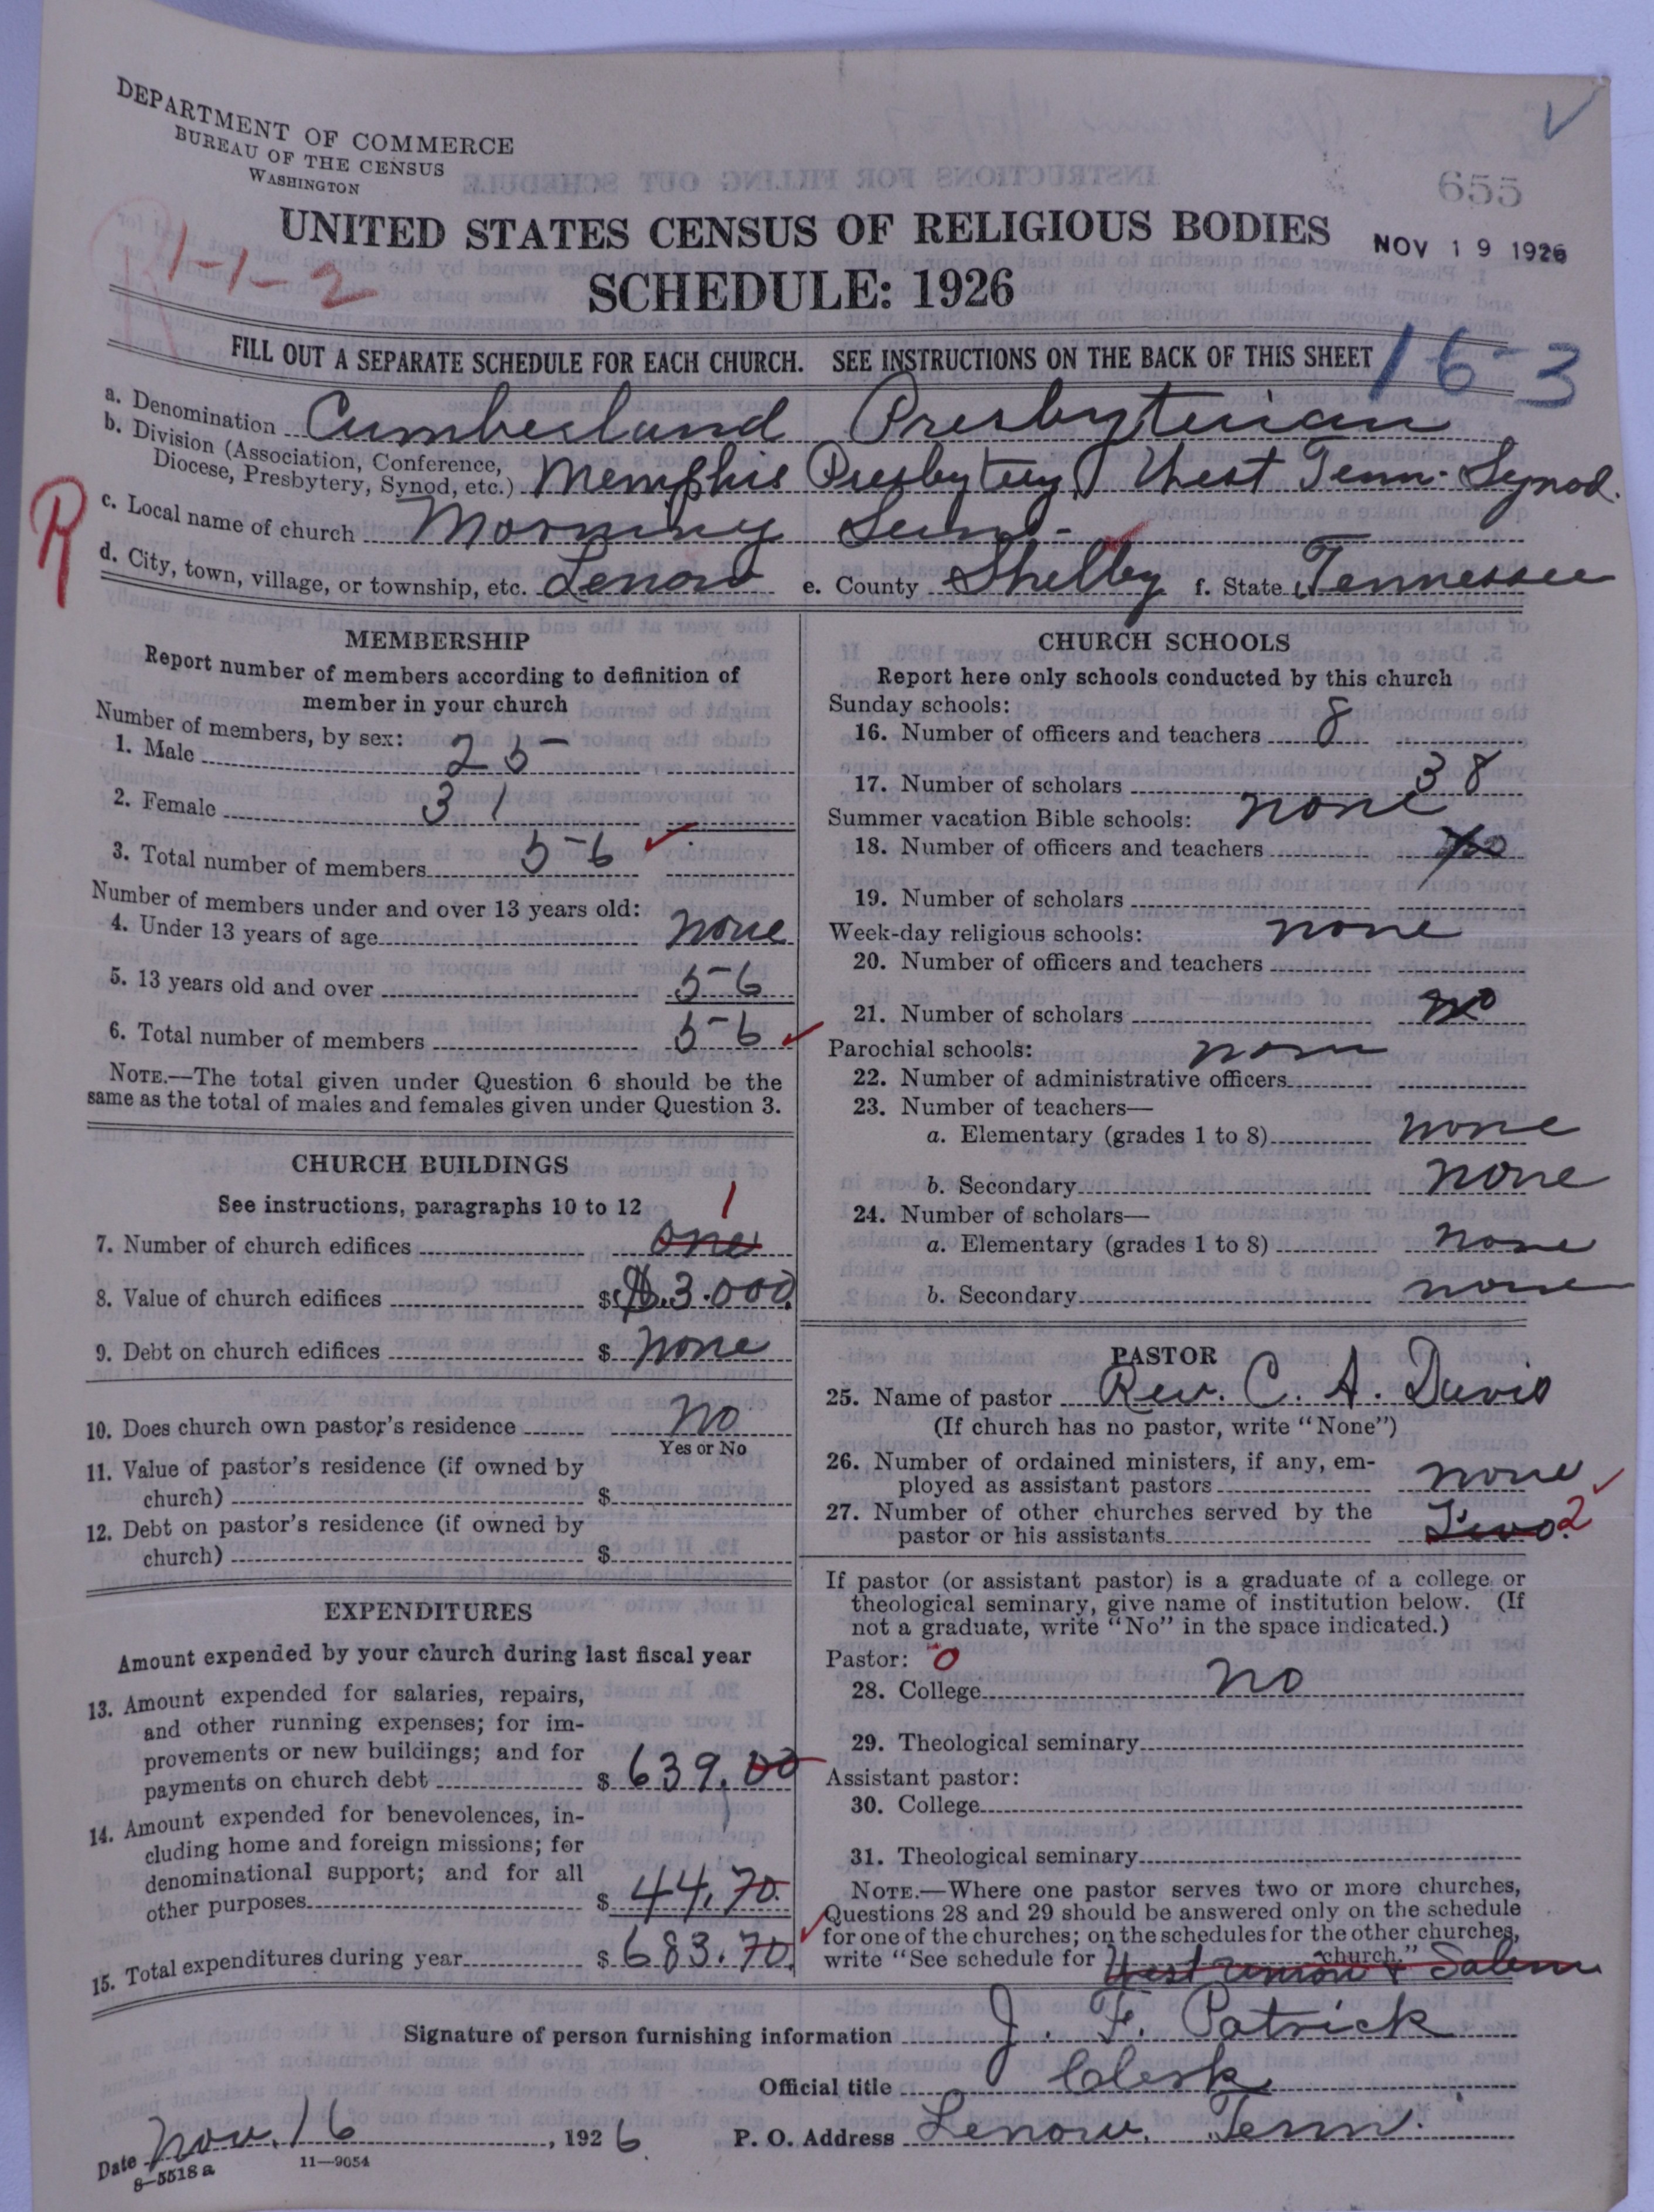 DEPARTMENT OF COMMERCE
BUREAU OF THE CENSUS
WASHINGTON
655
UNITED STATES CENSUS OF RELIGIOUS BODIES
NOV 19 1926
1-1-2
SCHEDULE: 1926
FILL OUT A SEPARATE SCHEDULE FOR EACH CHURCH. SEE INSTRUCTIONS ON THE BACK OF THIS SHEET
16-3
a. Denomination Cumberland Presbyterian
b. Division (Association, Conference, Diocese, Presbytery, Synod, etc.) Memphis Presbytery West Tenn. Synod.
R
c. Local name of church Morning Sun
d. City, town, village, or township, etc. Lenow e. County Shelby f. State Tennessee
MEMBERSHIP
Report number of members according to definition of
member in your church
Number of members, by sex:
1. Male 25
2. Female 31
3. Total number of members 56
Number of members under and over 13 years old:
4. Under 13 years of age none
5. 13 years old and over 56
6. Total number of members 56
NOTE.—The total given under Question 6 should be the
same as the total of males and females given under Question 3.
CHURCH BUILDINGS
See instructions, paragraphs 10 to 12
1
7. Number of church edifices one
8. Value of church edifices $ $3.000
9. Debt on church edifices $ none
10. Does church own pastor's residence no
Yes or No
11. Value of pastor's residence (if owned by
church) $
12. Debt on pastor's residence (if owned by
church) $
EXPENDITURES
Amount expended by your church during last fiscal year
13. Amount expended for salaries, repairs,
and other running expenses; for im-
provements or new buildings; and for
payments on church debt $ 639.00
14. Amount expended for benevolences, in-
cluding home and foreign missions; for
denominational support; and for all
other purposes $ 44.70
15. Total expenditures during year $ 683.70
CHURCH SCHOOLS
Report here only schools conducted by this church
Sunday schools:
16. Number of officers and teachers 8
17. Number of scholars 38
Summer vacation Bible schools: none
18. Number of officers and teachers
19. Number of scholars
Week-day religious schools: none
20. Number of officers and teachers
21. Number of scholars no
Parochial schools: none
22. Number of administrative officers
23. Number of teachers—
a. Elementary (grades 1 to 8) none
b. Secondary none
24. Number of scholars—
a. Elementary (grades 1 to 8) none
b. Secondary none
PASTOR
25. Name of pastor Rev. C. A. Davis
(If church has no pastor, write "None")
26. Number of ordained ministers, if any, em-
ployed as assistant pastors none
27. Number of other churches served by the
pastor or his assistants Two. 2
If pastor (or assistant pastor) is a graduate of a college or
theological seminary, give name of institution below. (If
not a graduate, write "No" in the space indicated.)
Pastor: 0
28. College no
29. Theological seminary
Assistant pastor:
30. College
31. Theological seminary
NOTE.—Where one pastor serves two or more churches,
Questions 28 and 29 should be answered only on the schedule
for one of the churches; on the schedules for the other churches,
write "See schedule for West Union & Salem church."
Signature of person furnishing information J. F. Patrick
Official title Clerk
Date Nov. 16, 1926 P. O. Address Lenow, Tenn.
8-5518 a 11—9054